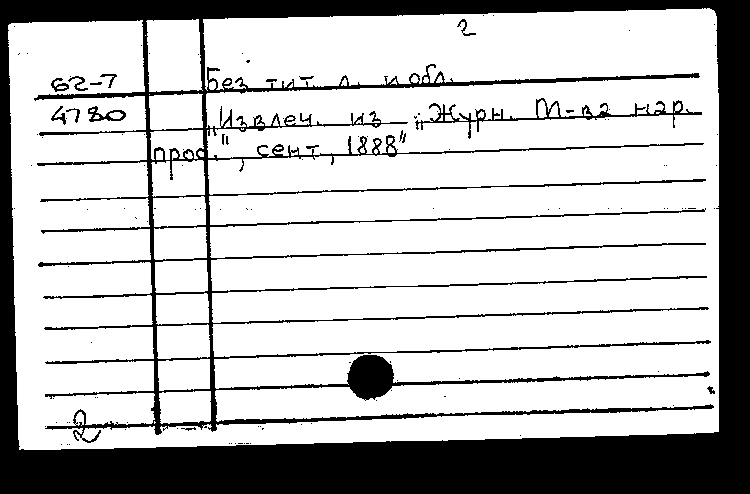 2
62-7 Без тит. л. и обл.
4780 „Извлеч. из „Журн. М-ва нар.
прос.", сент., 1888"
2